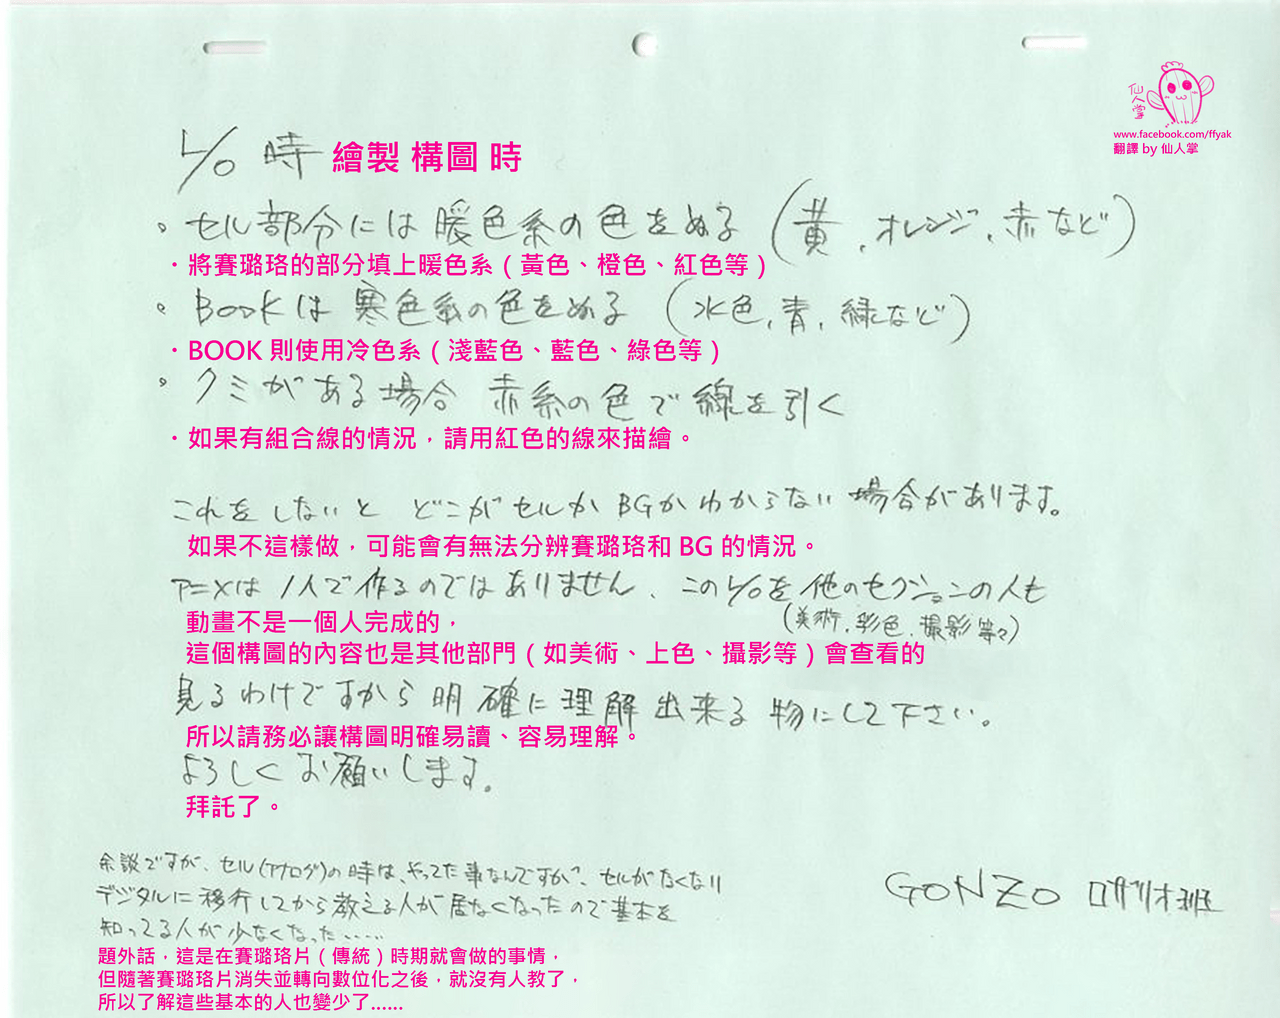 仙人掌
www.facebook.com/ffyak
翻譯 by 仙人掌
L/O 時 繪製 構圖 時
。セル部分には暖色系の色をぬる (黄，オレンジ，赤など)
・將賽璐珞的部分填上暖色系（黃色、橙色、紅色等）
。BOOKは寒色系の色をぬる (水色，青，緑など)
・BOOK 則使用冷色系（淺藍色、藍色、綠色等）
。クミがある場合 赤系の色で線を引く
・如果有組合線的情況，請用紅色的線來描繪。
これをしないと どこがセルか BGかわからない場合があります。
如果不這樣做，可能會有無法分辨賽璐珞和 BG 的情況。
アニメは1人で作るのではありません、このL/Oを他のセクションの人も
(美術，彩色，撮影等々)
動畫不是一個人完成的，
這個構圖的內容也是其他部門（如美術、上色、攝影等）會查看的
見るわけですから明確に理解出来る物にして下さい。
所以請務必讓構圖明確易讀、容易理解。
よろしくお願いします。
拜託了。
余談ですが、セル(アナログ)の時は、やってた事なんですが、セルがなくなり
デジタルに移行してから教える人が居なくなったので基本を
知ってる人が少なくなった.....
題外話，這是在賽璐珞片（傳統）時期就會做的事情，
但隨著賽璐珞片消失並轉向數位化之後，就沒有人教了，
所以了解這些基本的人也變少了......
GONZO ロザリオ班